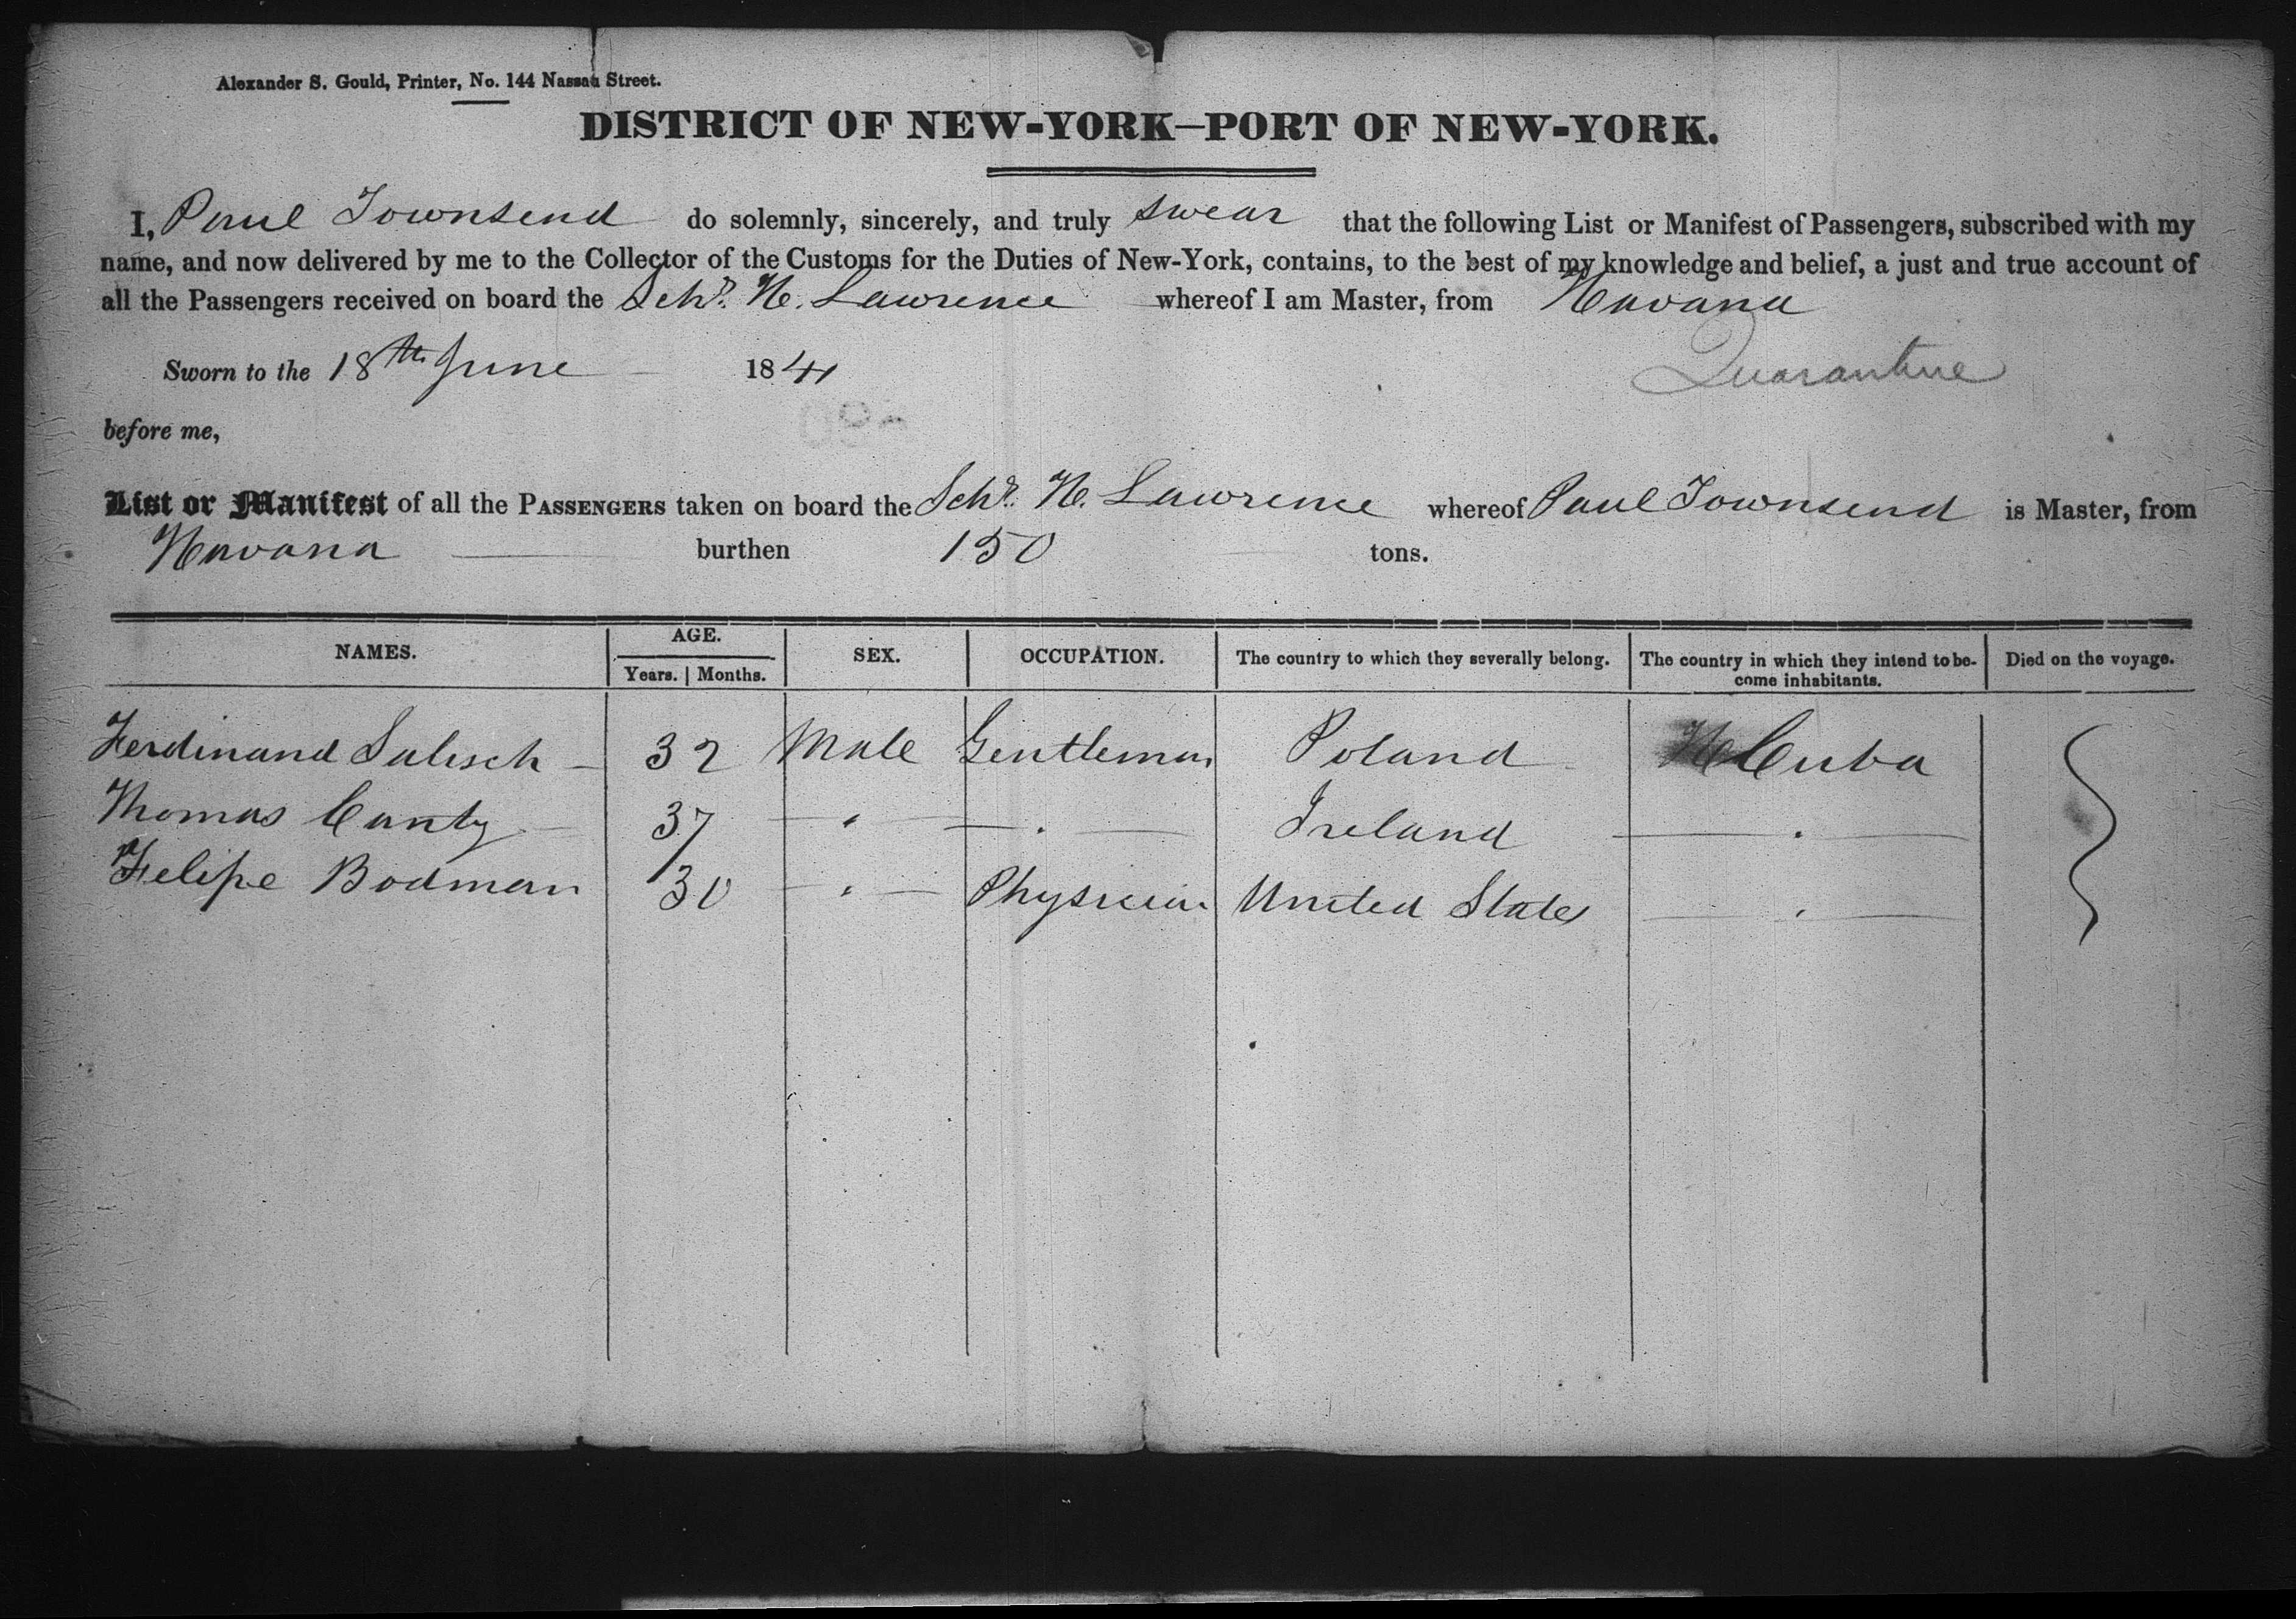 Alexander S. Gould, Printer, No. 144 Nassau Street.
DISTRICT OF NEW-YORK—PORT OF NEW-YORK.
I, Paul Townsend do solemnly, sincerely, and truly swear that the following List or Manifest of Passengers, subscribed with my
name, and now delivered by me to the Collector of the Customs for the Duties of New-York, contains, to the best of my knowledge and belief, a just and true account of
all the Passengers received on board the Schr. H. Lawrence whereof I am Master, from Havana
Quarantine
Sworn to the 18th June 1841
before me,
List or Manifest of all the PASSENGERS taken on board the Schr. H. Lawrence whereof Paul Townsend is Master, from
Havana burthen 150 tons.
NAMES. AGE. Years. Months. SEX. OCCUPATION. The country to which they severally belong. The country in which they intend to be-come inhabitants. Died on the voyage.
Ferdinand Salisch 32 Male Gentleman Poland Cuba
Thomas Canty 37 " " Ireland "
Felipe Bodman 30 " Physician United States "